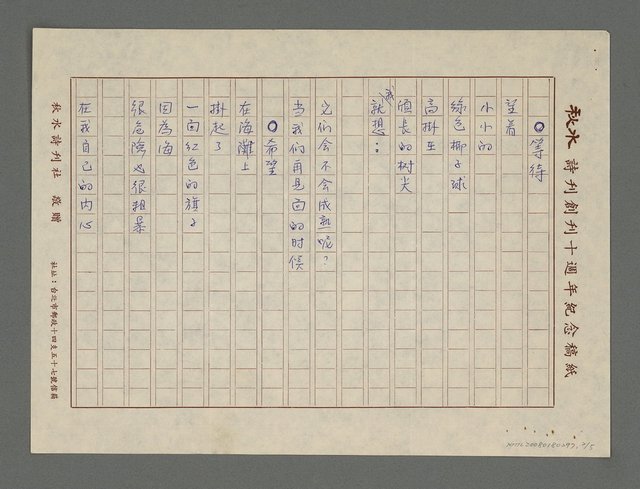 秋水 詩刊創刊十週年紀念稿紙
◎等待
望着
小小的
綠色椰子球
高掛在
頎長的树尖
我
就想：
它们会不会成熟呢？
当我们再見面的时候
◎希望
在海灘上
掛起了
一面紅色的旗子
因為海
很危險也很粗暴
在我自己的内心
秋水詩刊社 敬贈 社址：台北市郵政十四支五十七號信箱